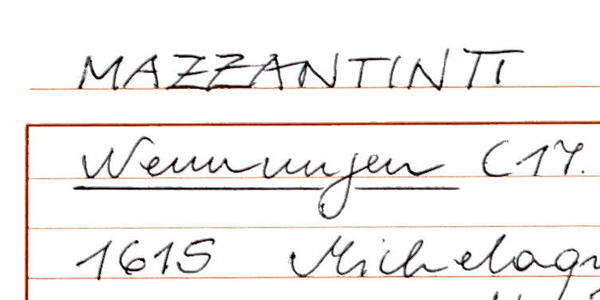 MAZZANTINTI
Nennungen (17.
1615 Michelagn